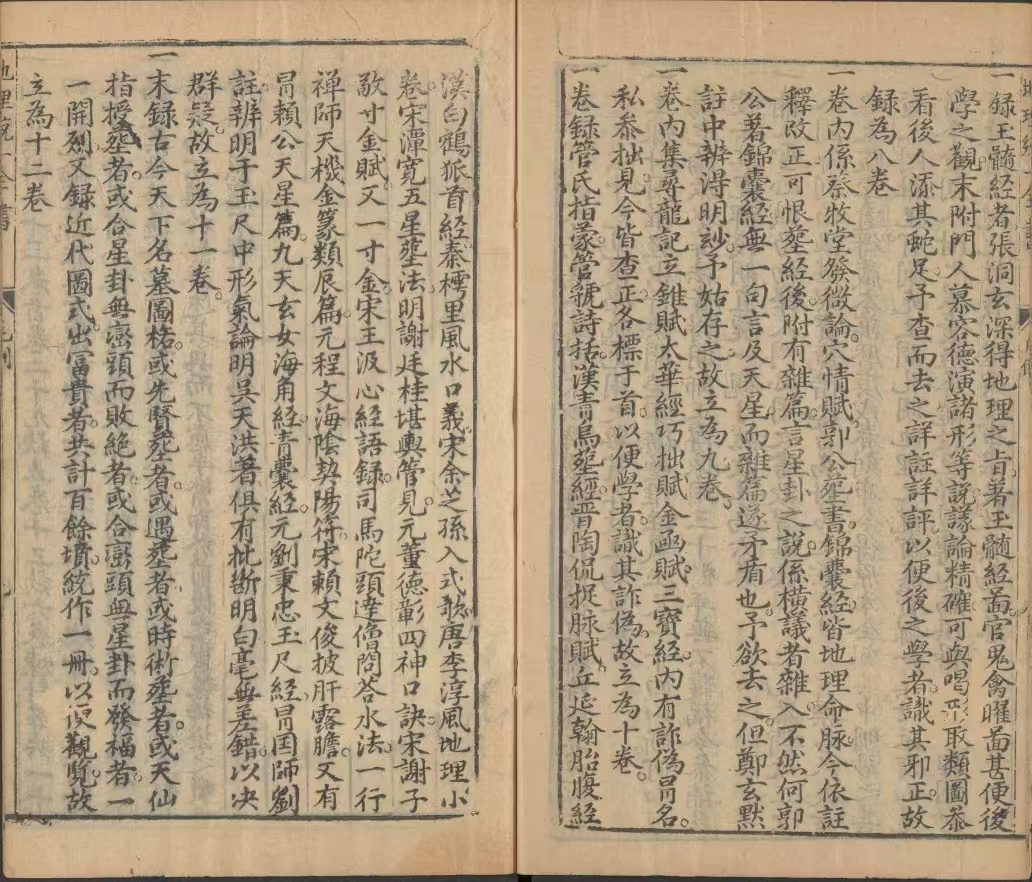 一錄王髓經者張洞玄深得地理之旨著玉髓經啚官鬼禽曜啚甚便後
學之觀末附門人慕容德演諸形等說議論精確可與喝形取類圖叅
看後人添其蛇足予查而去之詳註詳評以便後之學者識其邪正故
錄為八卷
一卷內係蔡牧堂發微論穴情賦郭公塟書錦囊經皆地理命脉今依註
釋改正可恨塟經後附有雜篇言星卦之說係橫議者雜入不然何郭
公著錦囊經無一句言及天星而雜篇遂矛盾也予欲去之但鄭玄默
註中辨淂明玅予姑存之故立為九卷
一卷內集尋龍記立錐賦太華經巧拙賦金函賦三寶經內有詐偽冐名
私叅拙見今皆查正各標于首以便學者識其詐偽故立為十卷
一卷錄管氏指蒙管虢詩括漢青烏塟經晋陶侃捉脉賦丘延翰胎腹經
漢白鶴狐首經秦樗里風水口義宋余芝孫入式歌唐李淳風地理小
卷宋潭寬五星塟法明謝廷桂堪輿管見元董德彰四神口訣宋謝子
敬寸金賦又一寸金宋王汲心經語録司馬陀頭達僧問荅水法一行
禅師天機金篆類辰篇元程文海陰契陽符宋賴文俊披肝露膽又有
冐賴公天星篇九天玄女海角經青囊經元劉秉忠玉尺經冐国師劉
註辨明于玉尺中形氣論明吳天洪著俱有批斷明白毫無差錯以决
群疑故立為十一卷
一末録古今天下名墓圖格或先賢塟者或遇塟者或時術塟者或天仙
指授塟者或合星卦無巒頭而敗絕者或合巒頭無星卦而發福者一
一開列又録近代圖式出富貴者共計百餘墳統作一冊以便觀覽故
立為十二卷
地理統一全書
凡例
九